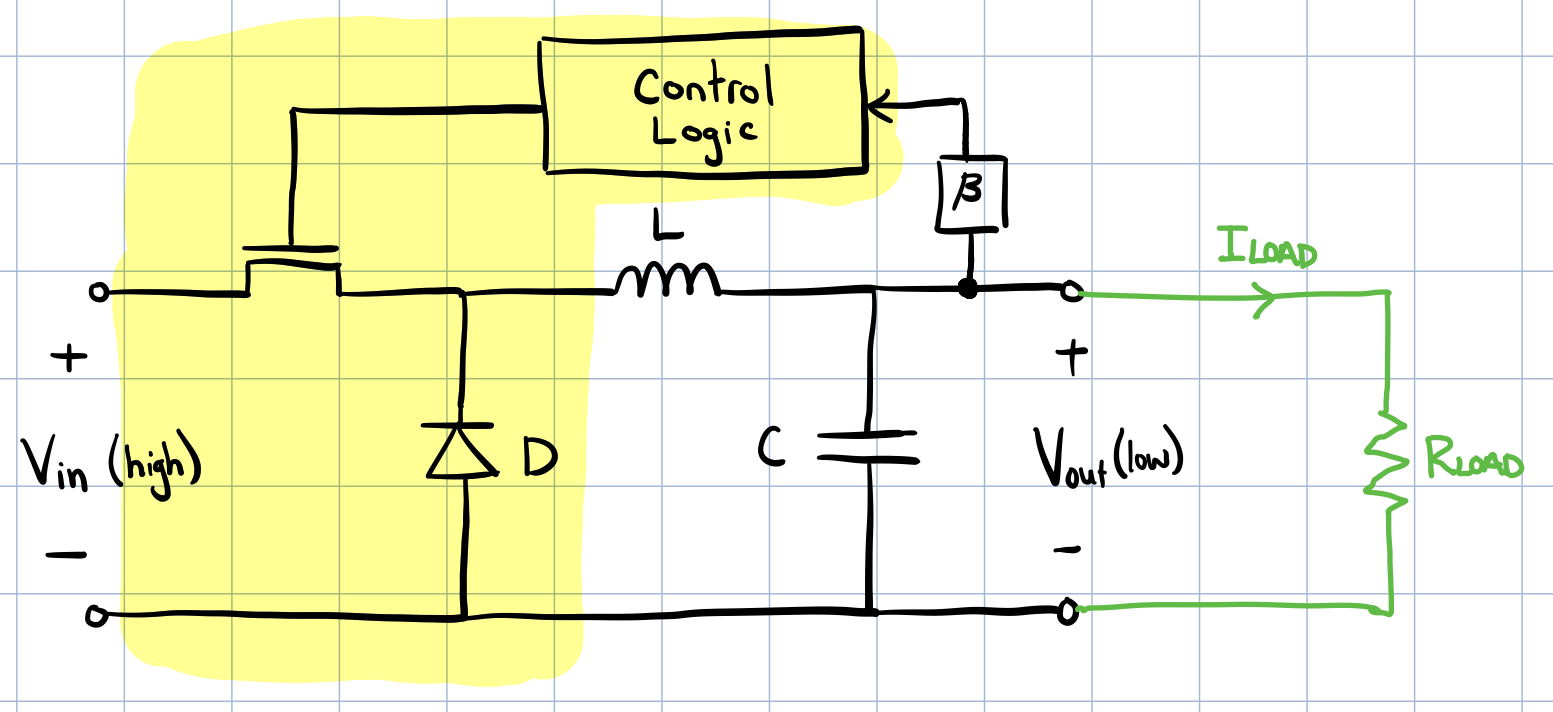 Control
Logic
β
L
I LOAD
+
+
Vin (high)
D
C
Vout (low)
RLOAD
−
-